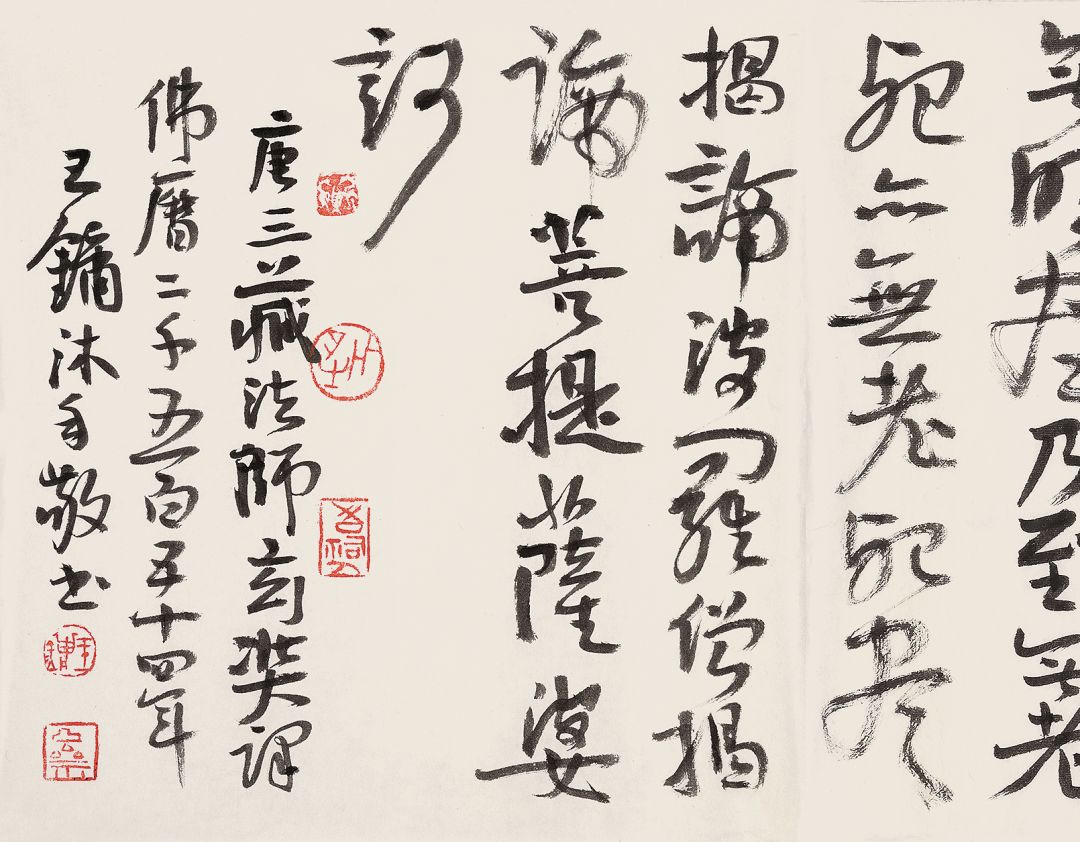 無明尽乃至无老
死亦無老死尽
揭諦波羅僧揭
諦菩提薩婆
訶
唐三藏法師玄奘譯
佛曆二千五百五十四年
王鏞沐手敬书